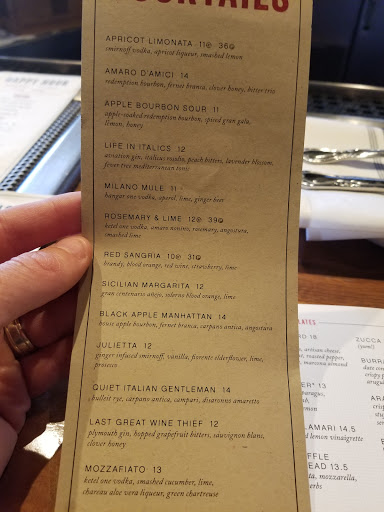 COCKTAILS
APRICOT LIMONATA 11@ 36@
smirnoff vodka, apricot liqueur, smashed lemon
AMARO D'AMICI 14
redemption bourbon, fernet branca, clover honey, bitter trio
APPLE BOURBON SOUR 11
apple-soaked redemption bourbon, spiced gran gala,
lemon, honey
LIFE IN ITALICS 12
aviation gin, italicus rosolio, peach bitters, lavender blossom,
fever tree mediterranean tonic
MILANO MULE 11
hangar one vodka, aperol, lime, ginger beer
ROSEMARY & LIME 12@ 39@
ketel one vodka, amaro nonino, rosemary, angostura,
smashed lime
RED SANGRIA 10@ 31@
brandy, blood orange, red wine, strawberry, lime
SICILIAN MARGARITA 12
gran centenario añejo, solerno blood orange, lime
BLACK APPLE MANHATTAN 14
house apple bourbon, fernet branca, carpano antica, angostura
JULIETTA 12
ginger infused smirnoff, vanilla, fiorente elderflower, lime,
prosecco
QUIET ITALIAN GENTLEMAN 14
bulleit rye, carpano antica, campari, disaronno amaretto
LAST GREAT WINE THIEF 12
plymouth gin, hopped grapefruit bitters, sauvignon blanc,
clover honey
MOZZAFIATO 13
ketel one vodka, smashed cucumber, lime,
chareau aloe vera liqueur, green chartreuse
HAPPY HOUR
PLATES
18
artisan cheese,
roasted pepper,
marcona almond
13
LAMARI 14.5
lemon vinaigrette
FFLE
EAD 13.5
mozzarella,
erbs
ZUCCA
BURRA
date
crispy